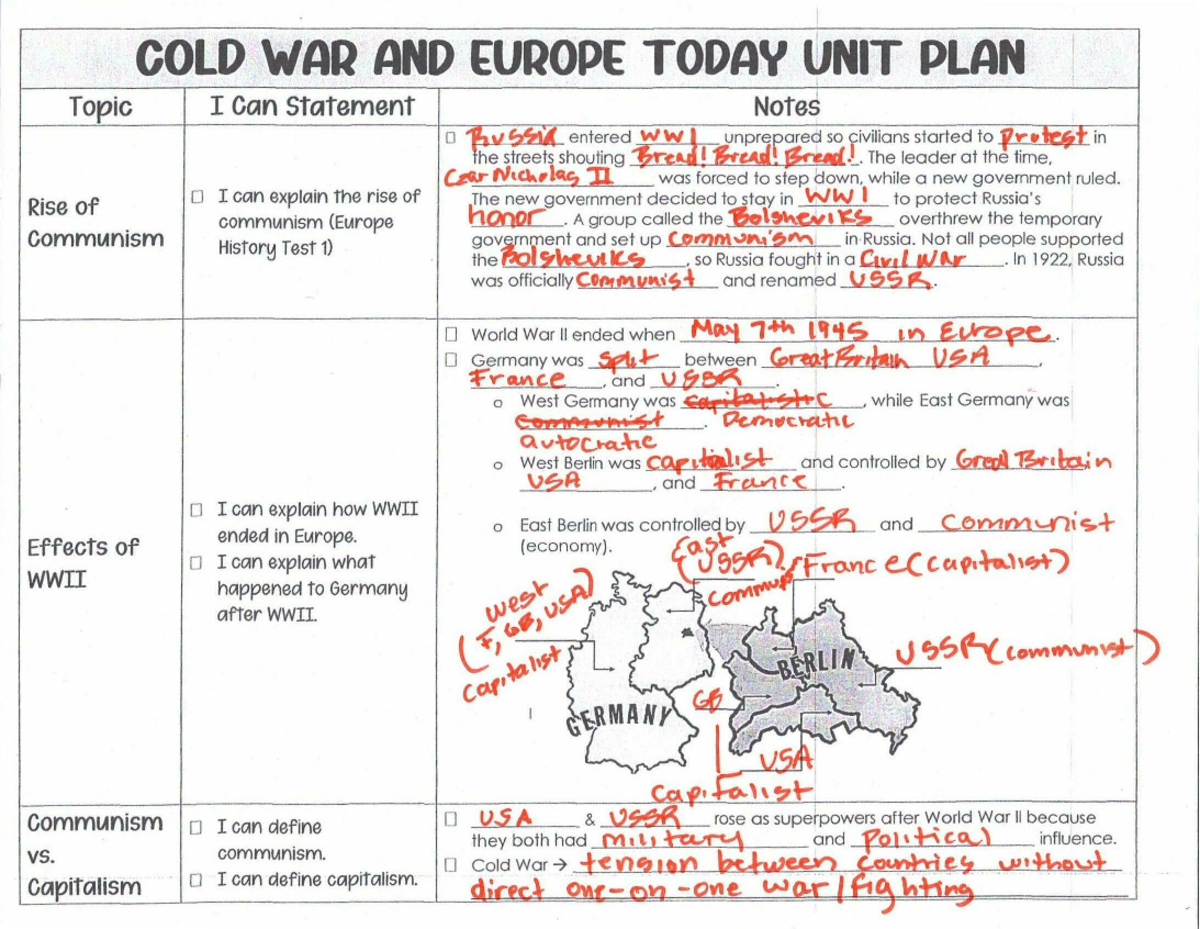 COLD WAR AND EUROPE TODAY UNIT PLAN
Topic
I Can Statement
Notes
Rise of
Communism
I can explain the rise of
communism (Europe
History Test 1)
Russia entered WW1 unprepared so civilians started to Protest in
the streets shouting Bread! Bread! Bread!. The leader at the time,
Czar Nicholas II was forced to step down, while a new government ruled.
The new government decided to stay in WW1 to protect Russia's
honor. A group called the Bolsheviks overthrew the temporary
government and set up Communism in Russia. Not all people supported
the Bolsheviks, so Russia fought in a Civil War. In 1922, Russia
was officially Communist and renamed USSR.
Effects of
WWII
I can explain how WWII
ended in Europe.
I can explain what
happened to Germany
after WWII.
World War II ended when May 7th 1945 in Europe.
Germany was Split between Great Britain USA,
France, and USSR.
West Germany was capitalistic, while East Germany was
Communist. Democratic
autocratic
West Berlin was capitialist and controlled by Great Britain
USA, and France.
East Berlin was controlled by USSR and Communist
(economy).
(East
USSR)
Commun
France (capitalist)
West
(F, GB, USA)
Capitalist
USSR (communist)
BERLIN
GB
GERMANY
USA
Capitalist
Communism
vs.
Capitalism
I can define
communism.
I can define capitalism.
USA & USSR rose as superpowers after World War II because
they both had military and Political influence.
Cold War → tension between countries without
direct one-on-one war/fighting